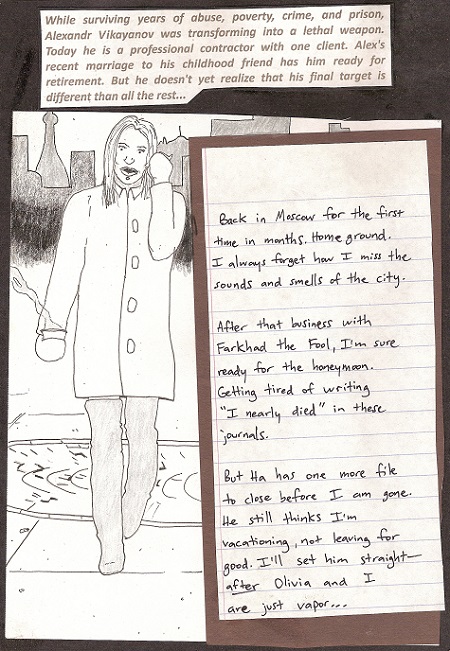 While surviving years of abuse, poverty, crime, and prison,
Alexandr Vikayanov was transforming into a lethal weapon.
Today he is a professional contractor with one client. Alex's
recent marriage to his childhood friend has him ready for
retirement. But he doesn't yet realize that his final target is
different than all the rest...
Back in Moscow for the first
time in months. Home ground.
I always forget how I miss the
sounds and smells of the city.
After that business with
Farkhad the Fool, I'm sure
ready for the honeymoon.
Getting tired of writing
"I nearly died" in these
journals.
But Ha has one more file
to close before I am gone.
He still thinks I'm
vacationing, not leaving for
good. I'll set him straight—
after Olivia and I
are just vapor...